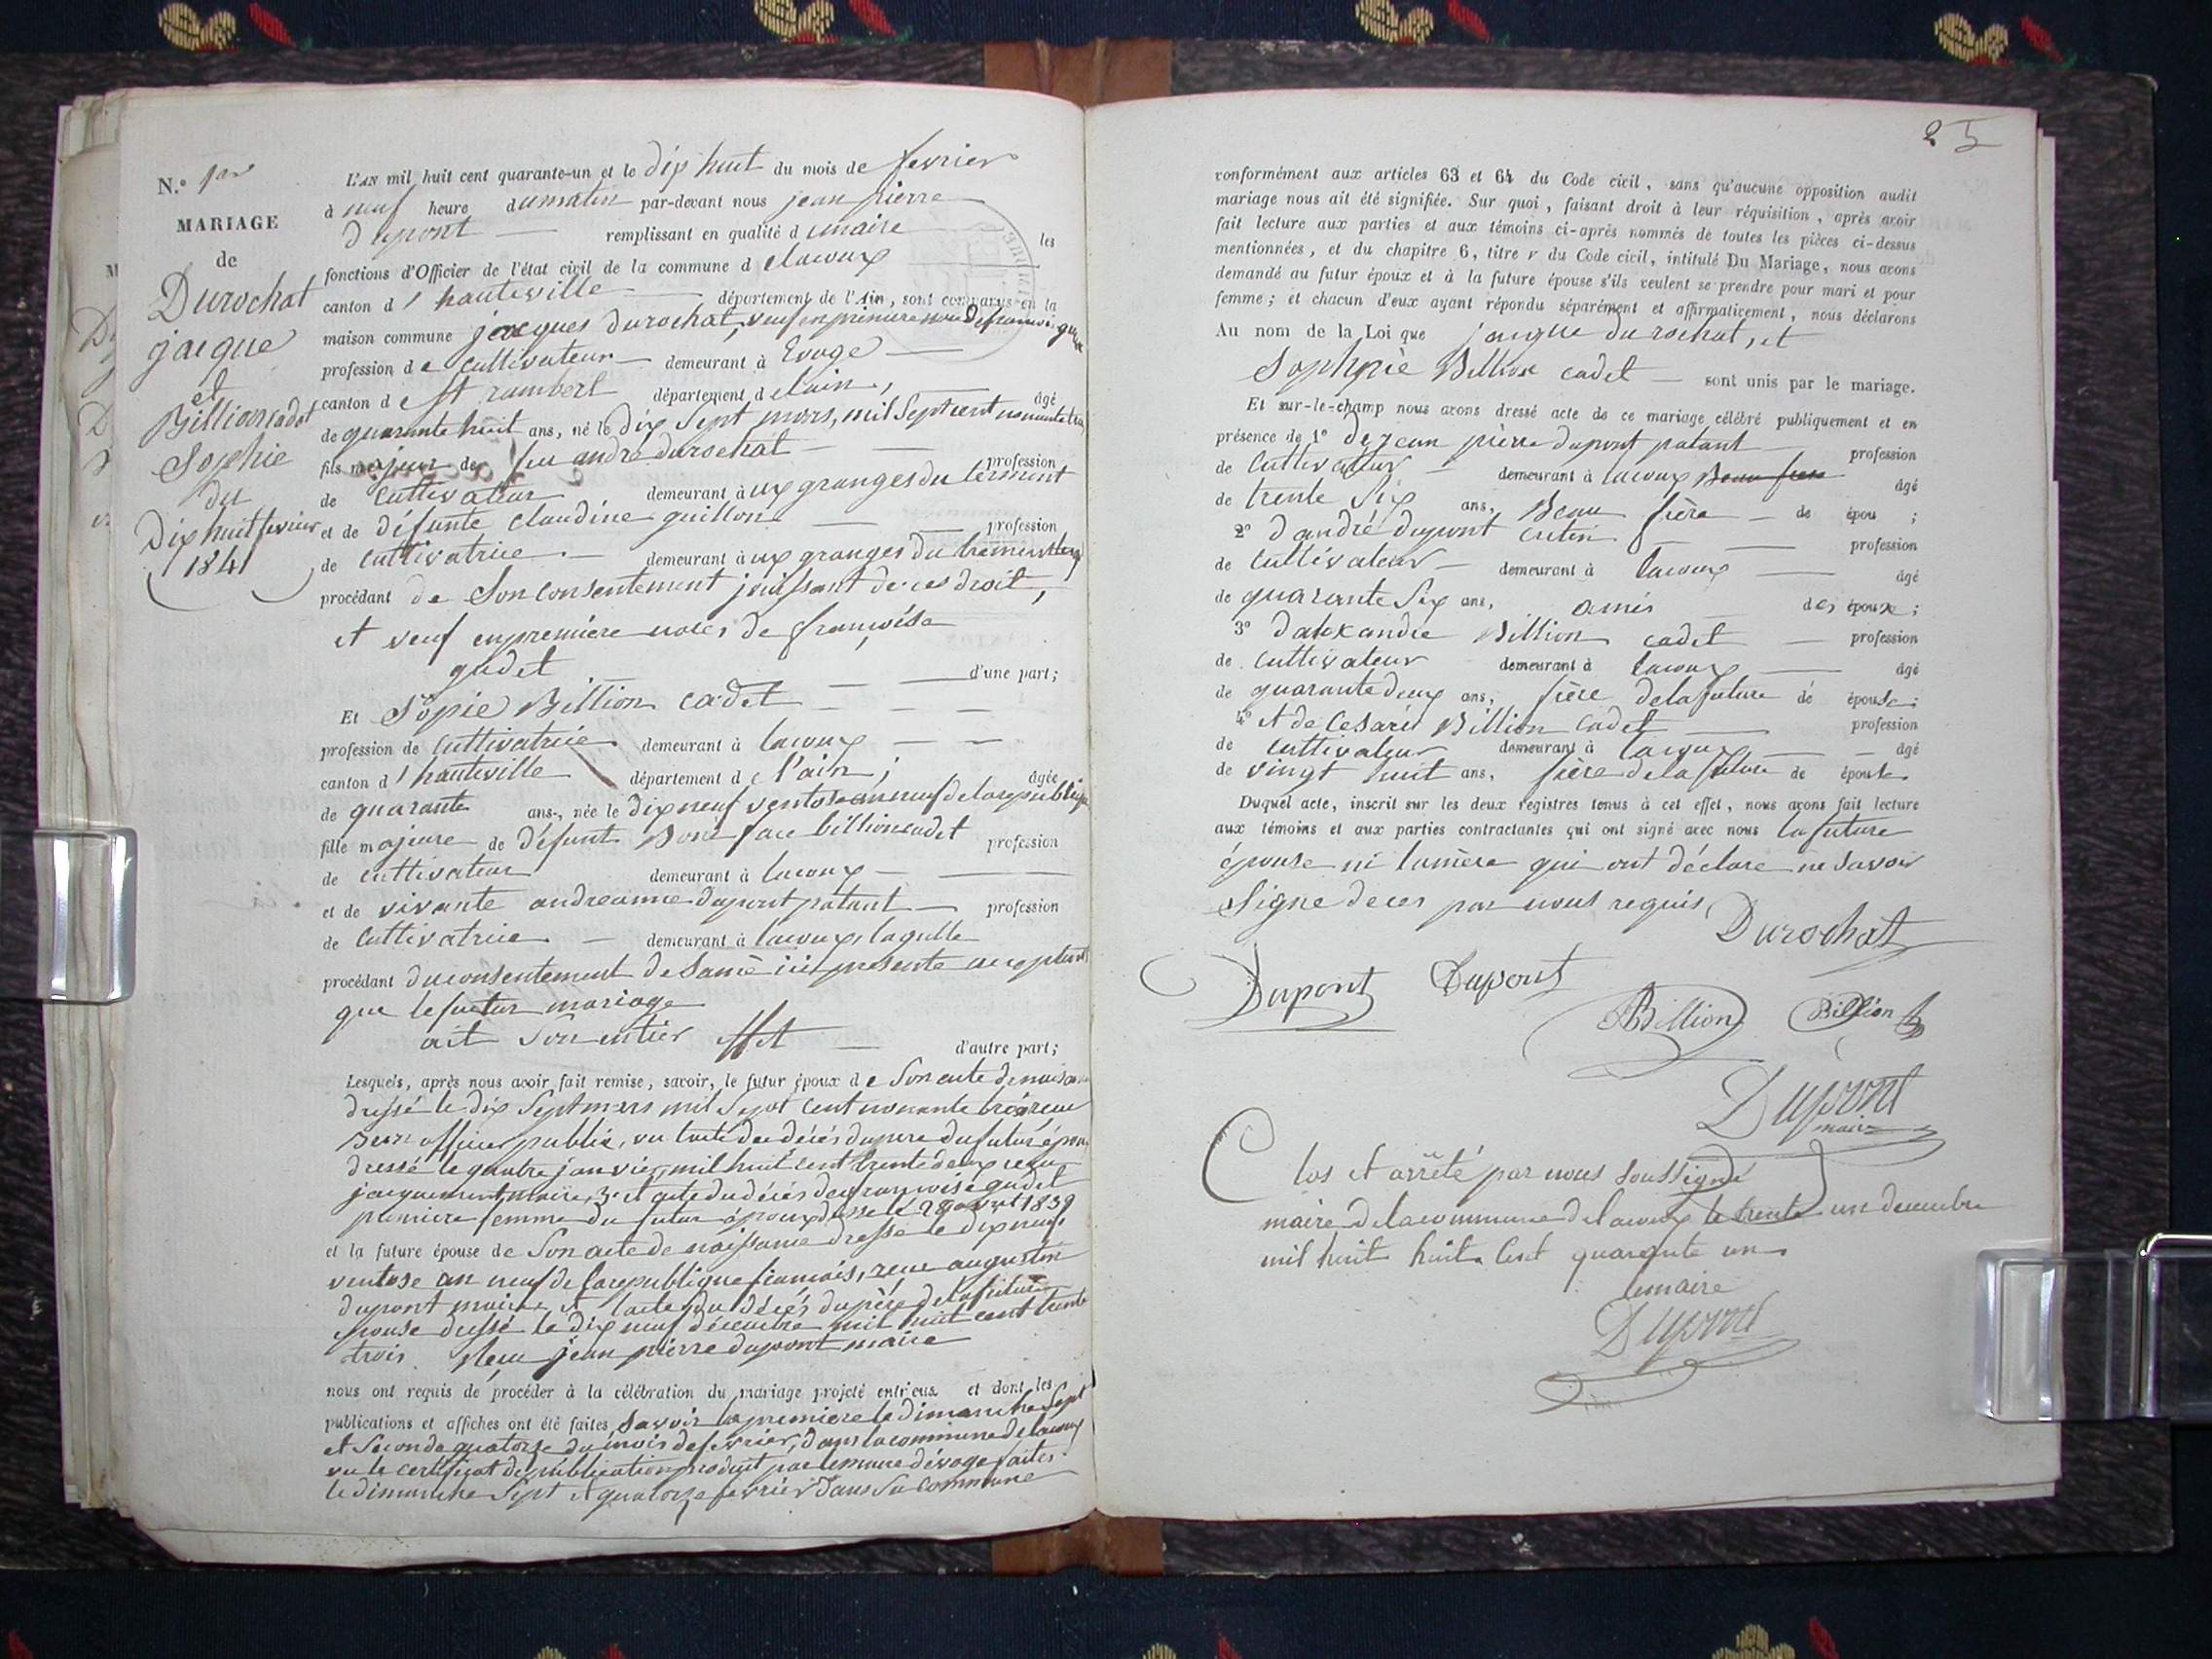 N.º 1er
MARIAGE
de
Durochat
jacque
et
Billion cadet
Sophie
du
Dix huit fevrier
1841
L'AN mil huit cent quarante-un et le dix huit du mois de fevrier
à neuf heure du matin par-devant nous jean pierre
Dupont remplissant en qualité de maire les
fonctions d'Officier de l'état civil de la commune de lacoux
canton d'hauteville département de l'Ain, sont comparus en la
maison commune jacques durochat, veuf en premiere
profession de cultivateur demeurant à Evoge
canton de St rambert département de lain, âgé
de quarante huit ans, né le dix Sept mars, mil Sept cent nonante trois
fils majeur de feu andré durochat profession
de cultivateur demeurant à ux granges du terment
et de défunte claudine guillon profession
de cultivatrice demeurant à ux granges du
procédant de Son consentement jouissant de ces droit,
et veuf en premiere noces de françoise
gudet d'une part;
Et Sopie Billion cadet
profession de cultivatrice demeurant à lacoux
canton d'hauteville département de l'ain; âgée
de quarante ans, née le dix neuf ventose an neuf de la republique
fille majeure de défunt Boniface billion cadet profession
de cultivateur demeurant à lacoux
et de vivante andreanne Dupont patant profession
de cultivatrice demeurant à lacoux
procédant du consentement de Samère ici presente acceptant
que le futur mariage
ait Son entier effet d'autre part;
Lesquels, après nous avoir fait remise, savoir, le futur époux de Son acte de naissance
dressé le dix Sept mars mil Sept cent nonante trois
officier public, vu lacte de décés du pere du futur époux
dressé le quatre janvier mil huit cent trente deux recu
maire, 3e et acte du décés de françoise gudet
premiere femme du futur époux dressé le
et la future épouse de Son acte de naissance dressé le dix neuf
ventose an neuf de la republique francais, recu augustin
dupont maire et lacte du décés du père de la future
épouse dressé le dix neuf décembre mil huit cent trente
trois. Recu jean pierre dupont maire
nous ont requis de procéder à la célébration du mariage projeté entr'eux et dont les
publications et affiches ont été faites, Savoir la premiere le dimanche Sept
et Seconde quatorze du mois de fevrier, dans la commune de lacoux
vu le certificat de publication produit par le maire dévoge faites
le dimanche Sept et quatorze fevrier dans Sa commune
25
conformément aux articles 63 et 64 du Code civil, sans qu'aucune opposition audit
mariage nous ait été signifiée. Sur quoi, faisant droit à leur réquisition, après avoir
fait lecture aux parties et aux témoins ci-après nommés de toutes les pièces ci-dessus
mentionnées, et du chapitre 6, titre v du Code civil, intitulé Du Mariage, nous avons
demandé au futur époux et à la future épouse s'ils veulent se prendre pour mari et pour
femme; et chacun d'eux ayant répondu séparément et affirmativement, nous déclarons
Au nom de la Loi que jacque durochat, et
Sophie Billion cadet sont unis par le mariage.
Et sur-le-champ nous avons dressé acte de ce mariage célébré publiquement et en
présence de 1º de jean pierre dupont patant profession
de cultivateur demeurant à lacoux Beau frere âgé
de trente Six ans, Beau frère de épou ;
2º d'andré dupont cretin profession
de cultivateur demeurant à lacoux âgé
de quarante Six ans, amis des époux;
3º dalexandre Billion cadet profession
de cultivateur demeurant à lacoux âgé
de quarante deux ans, frère de la future de épouse;
4º et de Cesarie Billion cadet profession
de cultivateur demeurant à lacoux âgé
de vingt huit ans, frère de la future de épouse
Duquel acte, inscrit sur les deux registres tenus à cet effet, nous avons fait lecture
aux témoins et aux parties contractantes qui ont signé avec nous la future
épouse ni la mère qui ont déclare ne savoir
Signe de ces par nous requis
Durochat
Dupont Dupont
ABillion Billion
Dupont
maire
Clos et arrêté par nous Soussigné
maire de la commune de lacoux le trente un decembre
mil huit huit Cent quarante un
le maire
Dupont